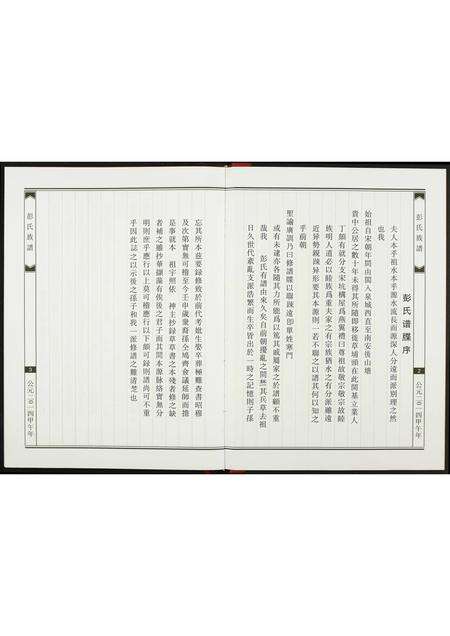 彭氏族譜
2
公元二〇一四甲午年
彭氏谱牒序
夫人本乎祖水本乎源水流長而源深人分遠而派別理之然
也我
始祖自宋朝年間由閩入泉城西直至南安後山塘
貴中公居之數十年未得其所隨即移徙草埔頭在此開基立業人
丁頗有就分支宋坑構屋爲燕翼禮曰尊祖故敬宗敬宗故睦
族明人道必以睦族爲重夫家之有宗族猶水之有分派雖遠
近异勢親疎异形要其本源則一若不聯之以譜其何以知之
乎前朝
聖諭廣訓乃曰修譜牒以聯疎遠即單姓寒門
或有未逮亦各隨其力所能爲以篤其戚屬家之於譜顧不重
哉我 彭氏有譜由來久矣自前朝擾亂之間焚其兵草去祖
日久世代紊亂支派浩繁而生卒皆出於一時之記憶則子孫
忘其所本兹要録修致於前代考妣生娶卒葬極難查書昭穆
及次第實無可稽至今壬申歲衆裔孫仝鳩齊會議延師而擔
是事就本 祖宇照依 神主抄録草書之本殘者修之缺
者補之雖抄華擷藻有俟後之君子而其間本源脉絡實無分
明則庶乎應行以上莫可稽應行以下頗可録則譜尚可不重
乎因此誌之以示後之孫子和我一派修譜之難清楚也
彭氏族譜
3
公元二〇一四甲午年